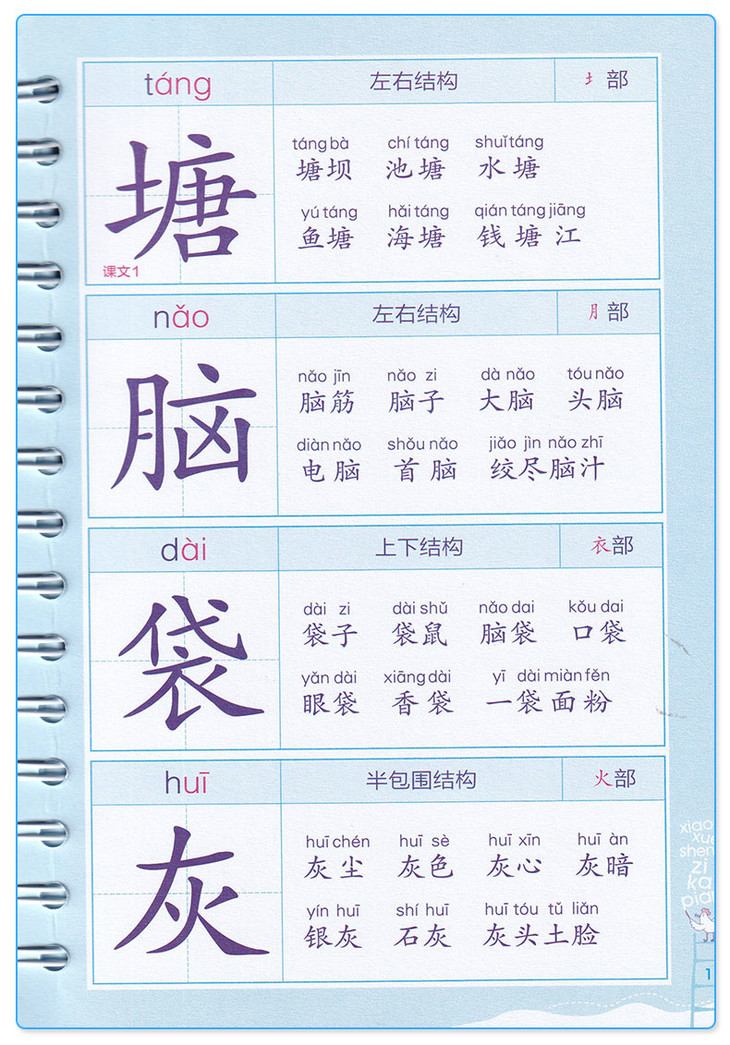 táng 左右结构 扌部
táng bà chí táng shuǐ táng
塘坝 池塘 水塘
塘
yú táng hǎi táng qián táng jiāng
鱼塘 海塘 钱塘江
课文1
nǎo 左右结构 月部
nǎo jīn nǎo zi dà nǎo tóu nǎo
脑筋 脑子 大脑 头脑
脑
diàn nǎo shǒu nǎo jiǎo jìn nǎo zhī
电脑 首脑 绞尽脑汁
dài 上下结构 衣部
dài zi dài shǔ nǎo dai kǒu dai
袋子 袋鼠 脑袋 口袋
袋
yǎn dài xiāng dài yī dài miàn fěn
眼袋 香袋 一袋面粉
huī 半包围结构 火部
huī chén huī sè huī xīn huī àn
灰尘 灰色 灰心 灰暗
灰
yín huī shí huī huī tóu tǔ liǎn
银灰 石灰 灰头土脸
xiao
xue
shen
zi
ka
pian
1